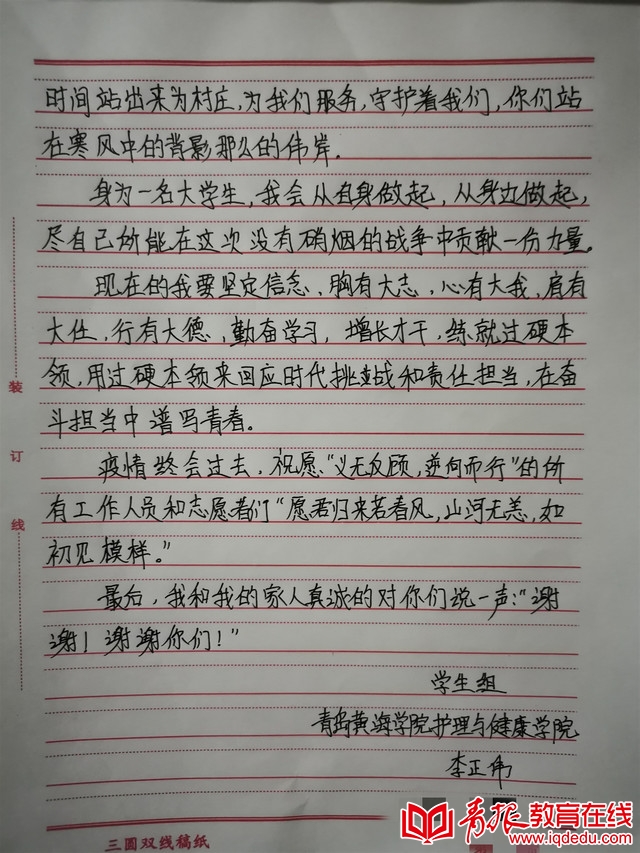 时间站出来为村庄,为我们服务,守护着我们,你们站
在寒风中的背影那么的伟岸.
身为一名大学生,我会从自身做起,从身边做起,
尽自己所能在这次没有硝烟的战争中贡献一份力量。
现在的我要坚定信念、胸有大志,心有大我,肩有
大任,行有大德,勤奋学习,增长才干,练就过硬本
领,用过硬本领来回应时代挑战和责任担当,在奋
斗担当中谱写青春。
疫情终会过去,祝愿“义无反顾,逆向而行”的所
有工作人员和志愿者们“愿君归来若春风,山河无恙,如
初见模样。”
最后,我和我的家人真诚的对你们说一声:“谢
谢!谢谢你们!”
学生组
青岛黄海学院护理与健康学院
李正伟
装
订
线
三圆双线稿纸
青报教育在线
www.iqdedu.com